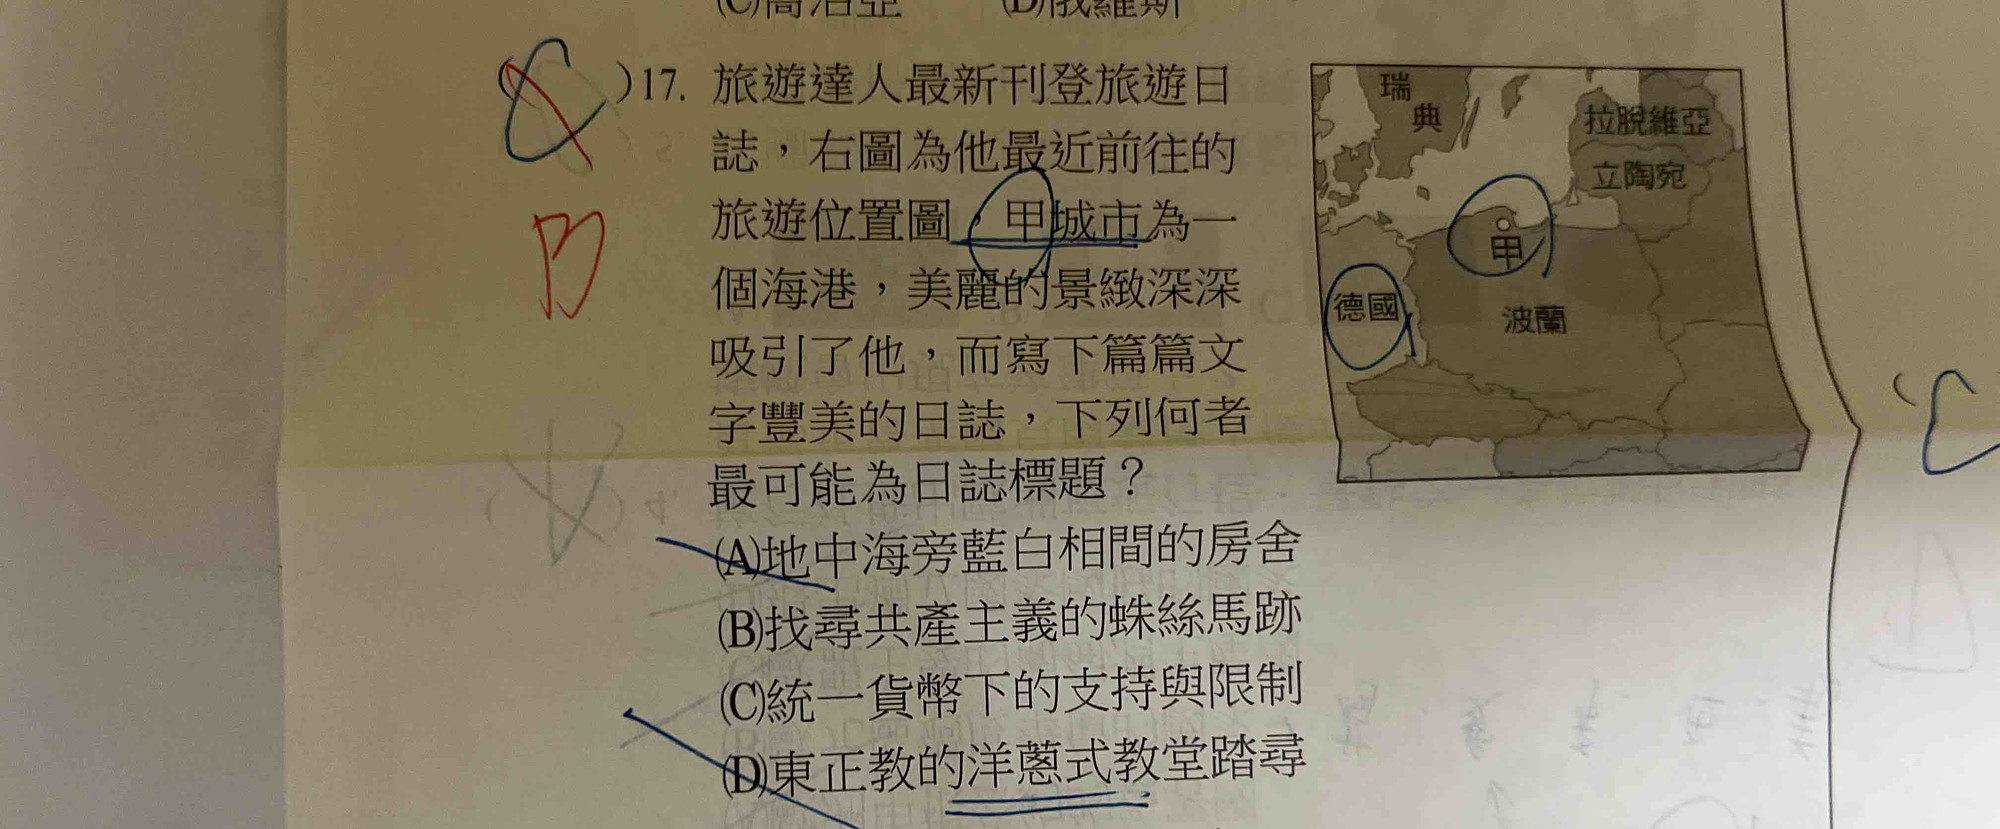 (C)喬治亞 (D)俄羅斯
(C)17. 旅遊達人最新刊登旅遊日
誌，右圖為他最近前往的
旅遊位置圖，甲城市為一
個海港，美麗的景緻深深
吸引了他，而寫下篇篇文
字豐美的日誌，下列何者
最可能為日誌標題？
(A)地中海旁藍白相間的房舍
(B)找尋共產主義的蛛絲馬跡
(C)統一貨幣下的支持與限制
(D)東正教的洋蔥式教堂踏尋
B
瑞典
拉脫維亞
立陶宛
甲
德國
波蘭